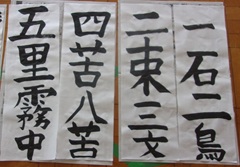 一石二鳥
二束三文
四苦八苦
五里霧中